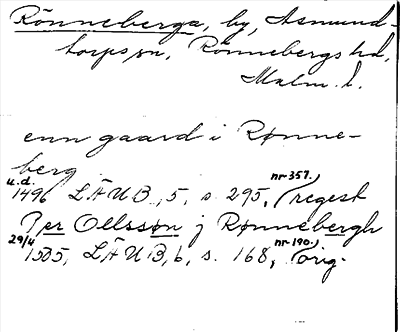 Rönneberga, by, Asmund-
torps sn, Rönnebergs hd,
Malm. l.
enn gaard i Rønne-
berg
u.d. 1496 LÄUB, 5, s. 295, (nr 357.) regest
Per Ollssøn j Rønnebergh
29/4 1505, LÄUB, 6, s. 168, (nr 190.) orig.